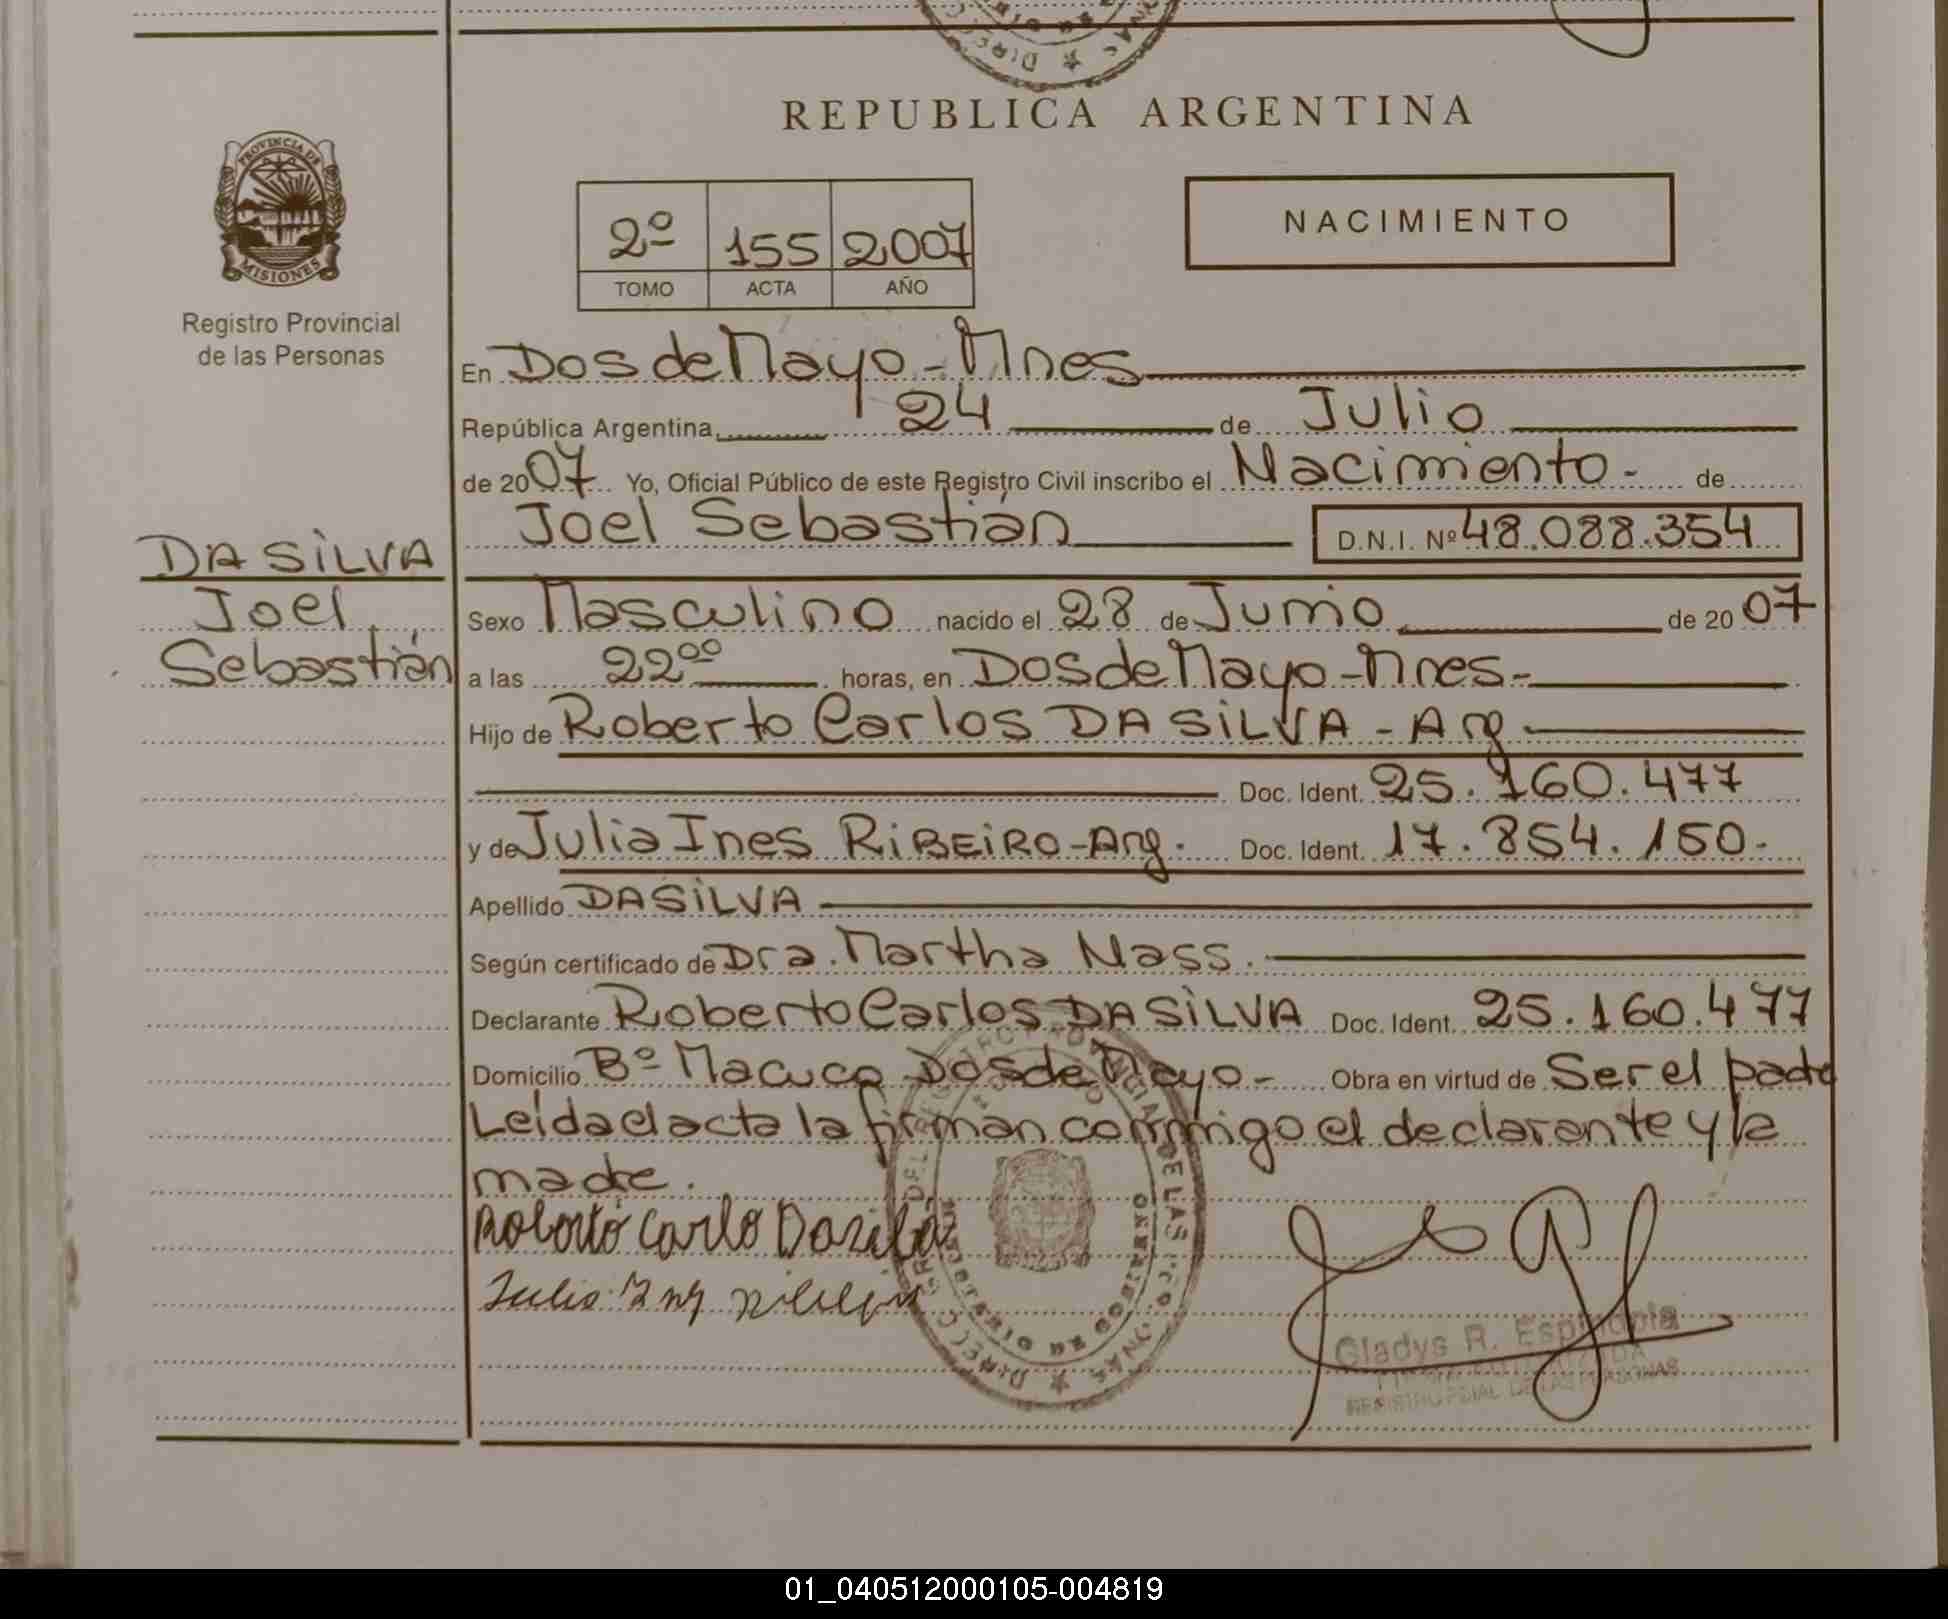 REPUBLICA ARGENTINA
PROVINCIA DE
MISIONES
Registro Provincial
de las Personas
2º 155 2007
TOMO ACTA AÑO
NACIMIENTO
En Dos de Mayo - Mnes
República Argentina, 24 de Julio
de 2007 Yo, Oficial Público de este Registro Civil inscribo el Nacimiento - de
Joel Sebastián D.N.I. Nº 48.088.354
DA SILVA
Joel
Sebastián
Sexo Masculino nacido el 28 de Junio de 2007
a las 22ºº horas, en Dos de Mayo - Mnes -
Hijo de Roberto Carlos DA SILVA - Arg
Doc. Ident. 25.160.477
y de Julia Ines RIBEIRO - Arg. Doc. Ident. 17.854.150-
Apellido DA SILVA
Según certificado de Dra. Martha Nass.
Declarante Roberto Carlos DA SILVA Doc. Ident. 25.160.477
Domicilio Bº Macuco Dos de Mayo - Obra en virtud de Ser el padre
Leída el acta la firman conmigo el declarante y la
madre.
Roberto Carlo Dasilba
Gladys R. Espindola
REGISTRO PCIAL DE LAS PERSONAS
01_040512000105-004819